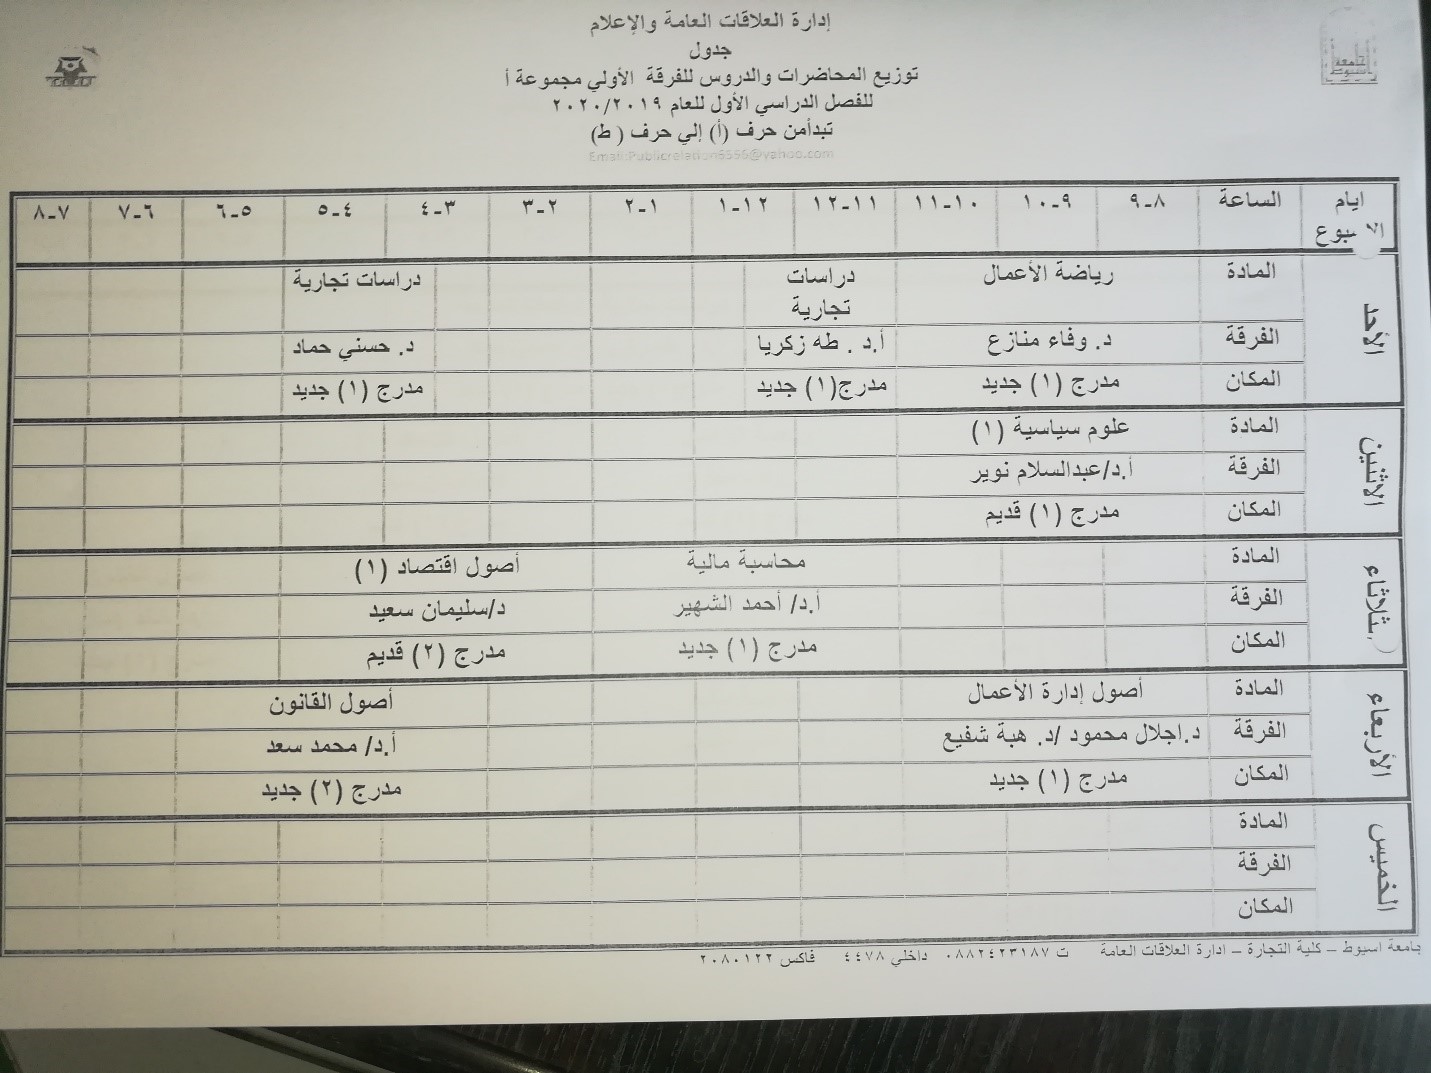 إدارة العلاقات العامة والإعلام
جدول
توزيع المحاضرات والدروس للفرقة الأولي مجموعة أ
للفصل الدراسي الأول للعام ٢٠٢٠/٢٠١٩
تبدأمن حرف (أ) إلي حرف ( ط)
جامعة
اسيوط
ايام الساعة ٨-٩ ٩-١٠ ١٠-١١ ١١-١٢ ١٢-١ ١-٢ ٢-٣ ٣-٤ ٤-٥ ٥-٦ ٦-٧ ٧-٨
الأحد
المادة رياضة الأعمال دراسات تجارية دراسات تجارية
الفرقة د. وفاء منازع أ.د . طه زكريا د. حسني حماد
المكان مدرج (١) جديد مدرج(١) جديد مدرج (١) جديد
الاثنين
المادة علوم سياسية (١)
الفرقة أ.د/عبدالسلام نوير
المكان مدرج (١) قديم
المادة محاسبة مالية أصول اقتصاد (١)
الفرقة أ.د/ أحمد الشهير د/سليمان سعيد
المكان مدرج (١) جديد مدرج (٢) قديم
الأربعاء
المادة أصول إدارة الأعمال أصول القانون
الفرقة د.اجلال محمود /د. هبة شفيع أ.د/ محمد سعد
المكان مدرج (١) جديد مدرج (٢) جديد
الخميس
المادة
الفرقة
المكان
جامعة اسيوط – كلية التجارة – ادارة العلاقات العامة ت ٠٨٨٢٤٢٣١٨٧ داخلي ٤٤٧٨ فاكس ٢٠٨٠١٢٢